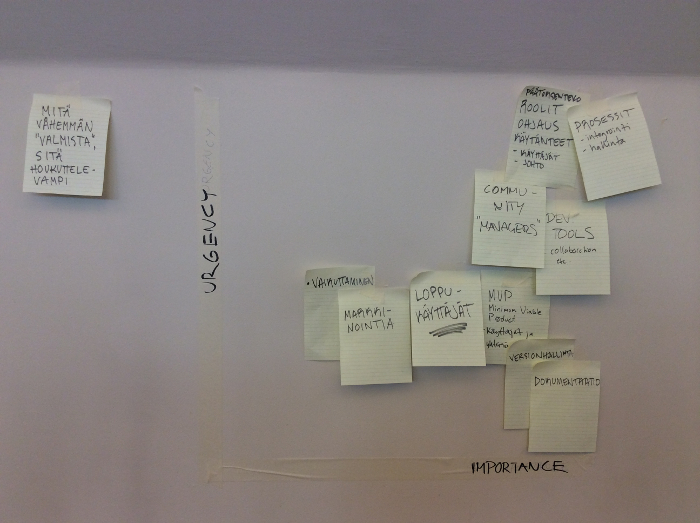 MITÄ
VÄHEMMÄN
"VALMISTA",
SITÄ
HOUKUTTELE-
VAMPI
URGENCY
PÄÄTÖKSENTEKO
ROOLIT
OHJAUS
KÄYTÄNTEET
- KÄYTTÄJÄT
- JOHTO
PROSESSIT
- integrointi
- hallinta
COMMU-
NITY
"MANAGERS"
DEV
TOOLS
collaboration
etc
• VAIKUTTAMINEN
MARKKI-
NOINTIA
LOPPU-
KÄYTTÄJÄT
MVP
Minimum Viable
Product
Käyttäjät ja
VERSIONHALLINTA
DOKUMENTAATIO
IMPORTANCE